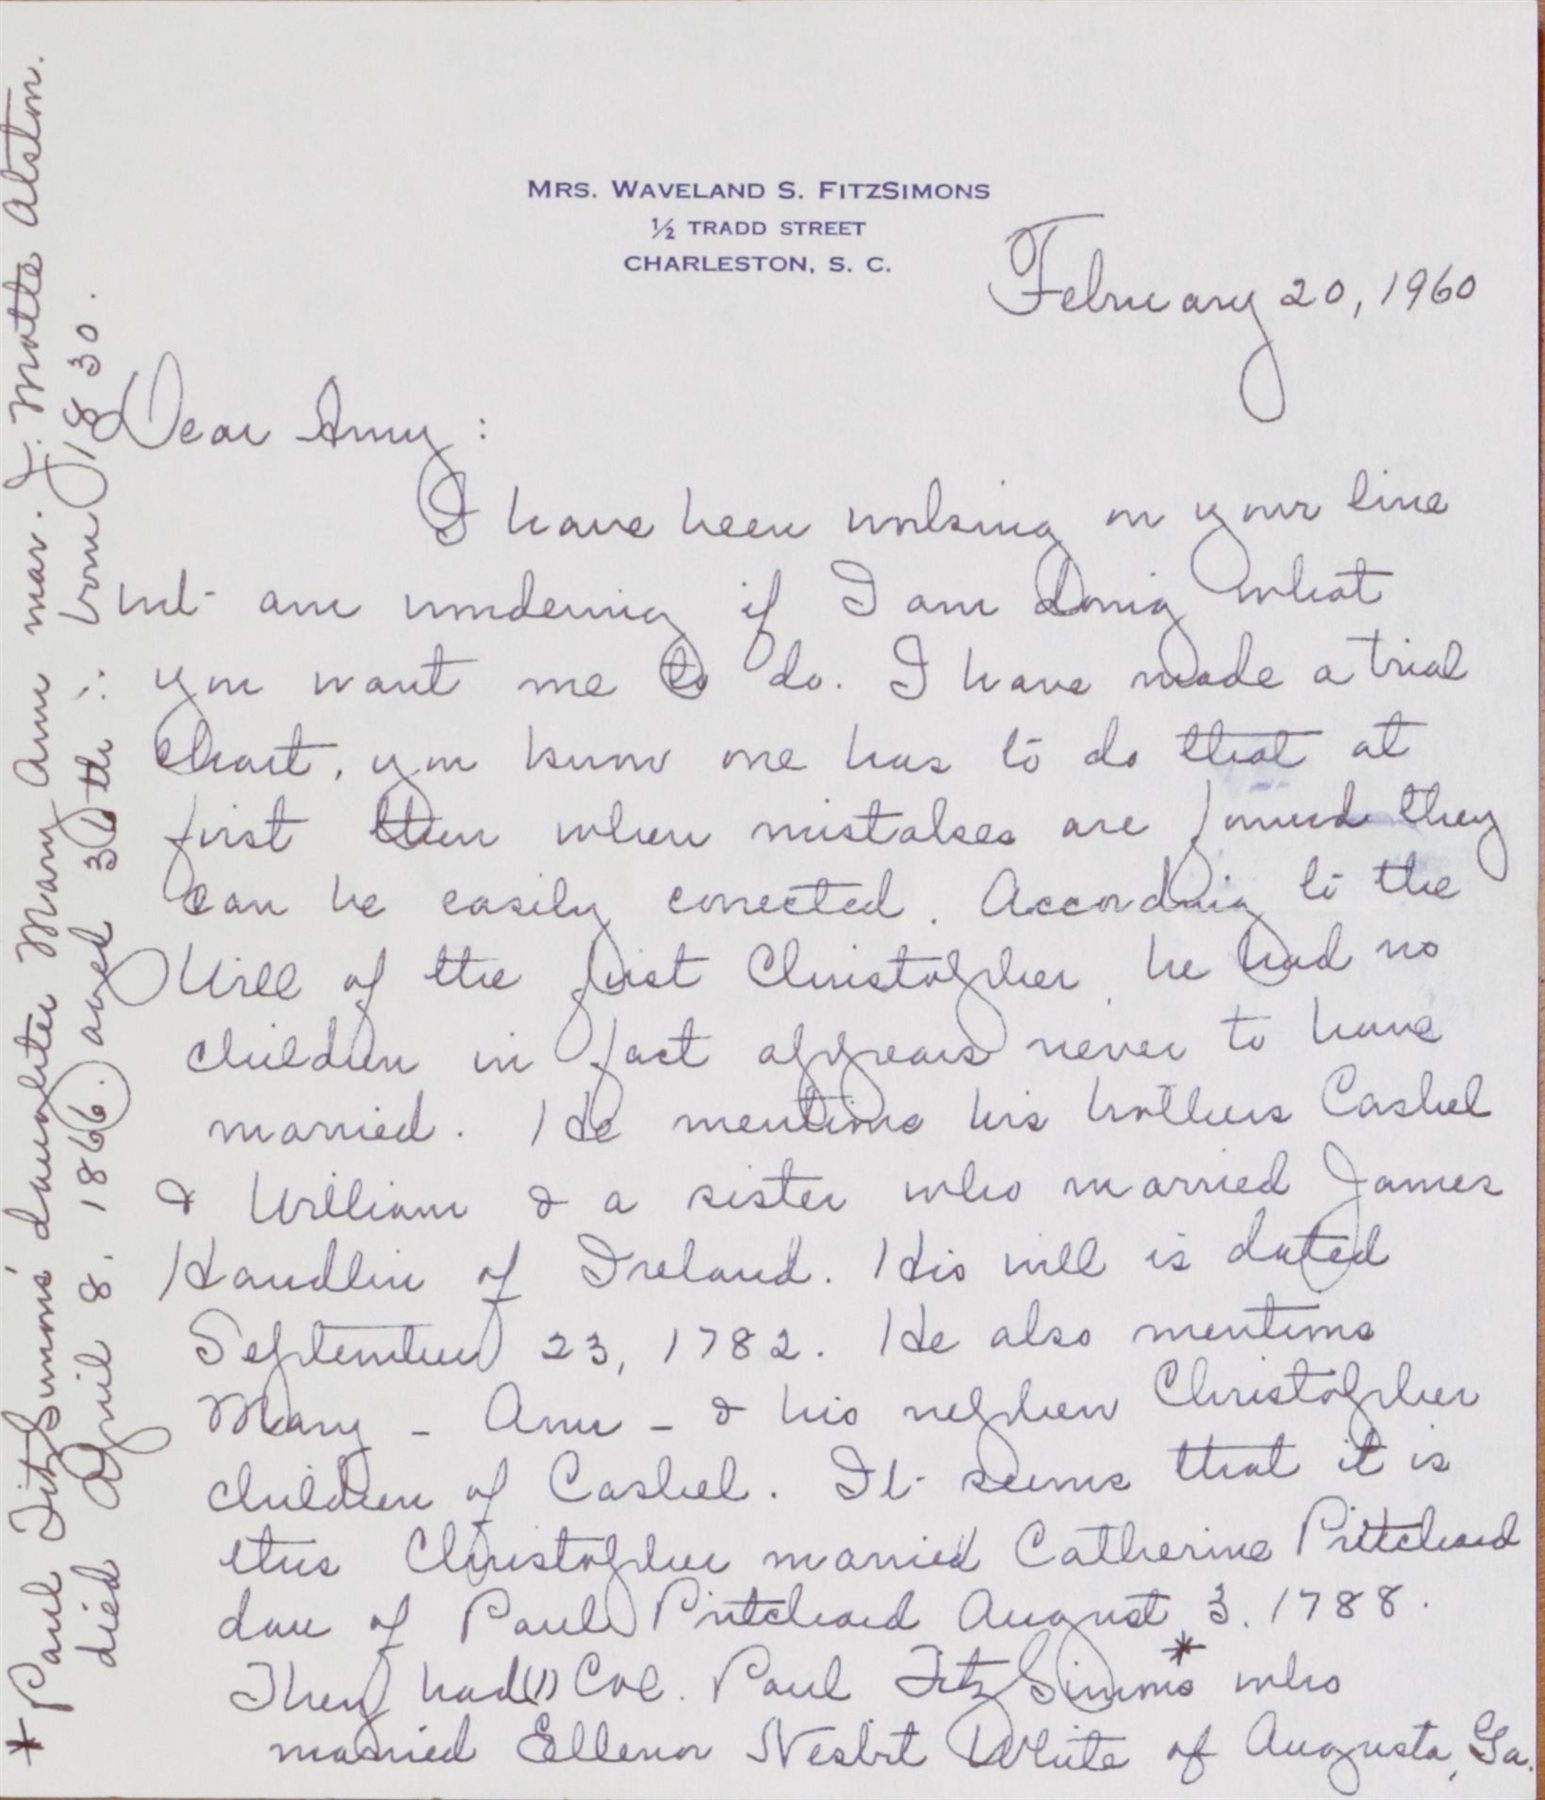 MRS. WAVELAND S. FITZSIMONS
½ TRADD STREET
CHARLESTON, S. C.
February 20, 1960
Dear Amy:
I have been working on your line
but am wondering if I am doing what
you want me to do. I have made a trial
chart, you know one has to do that at
first then when mistakes are found they
can be easily corrected. According to the
Will of the first Christopher he had no
children in fact appears never to have
married. He mentions his brothers Cashel
& William & a sister who married James
Handlin of Ireland. His will is dated
September 23, 1782. He also mentions
Mary - Ann - & his nephew Christopher
children of Cashel. It seems that it is
this Christopher married Catherine Pritchard
dau of Paul Pritchard August 3. 1788.
They had (1) Col. Paul FitzSimons* who
married Ellenor Nesbit White of Augusta, Ga.
* Paul FitzSimons' daughter Mary Ann mar. J. Motte Alston.
died April 8. 1866. aged 36 th :. born 1830.